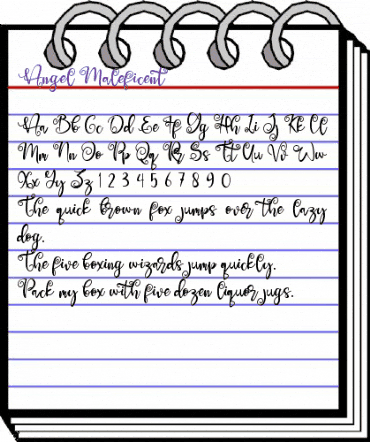 Angel Maleficent
Aa Bb Cc Dd Ee Ff Gg Hh Ii Jj Kk Ll
Mm Nn Oo Pp Qq Rr Ss Tt Uu Vv Ww
Xx Yy Zz 1 2 3 4 5 6 7 8 9 0
The quick brown fox jumps over the lazy
dog.
The five boxing wizards jump quickly.
Pack my box with five dozen liquor jugs.